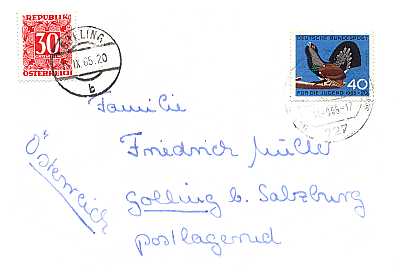 REPUBLIK
30
ÖSTERREICH
GOLLING
IX.65.20
b
DEUTSCHE BUNDESPOST
40
FÜR DIE JUGEND 1965
Familie
Friedrich Müller
Golling b. Salzburg
postlagernd
Österreich